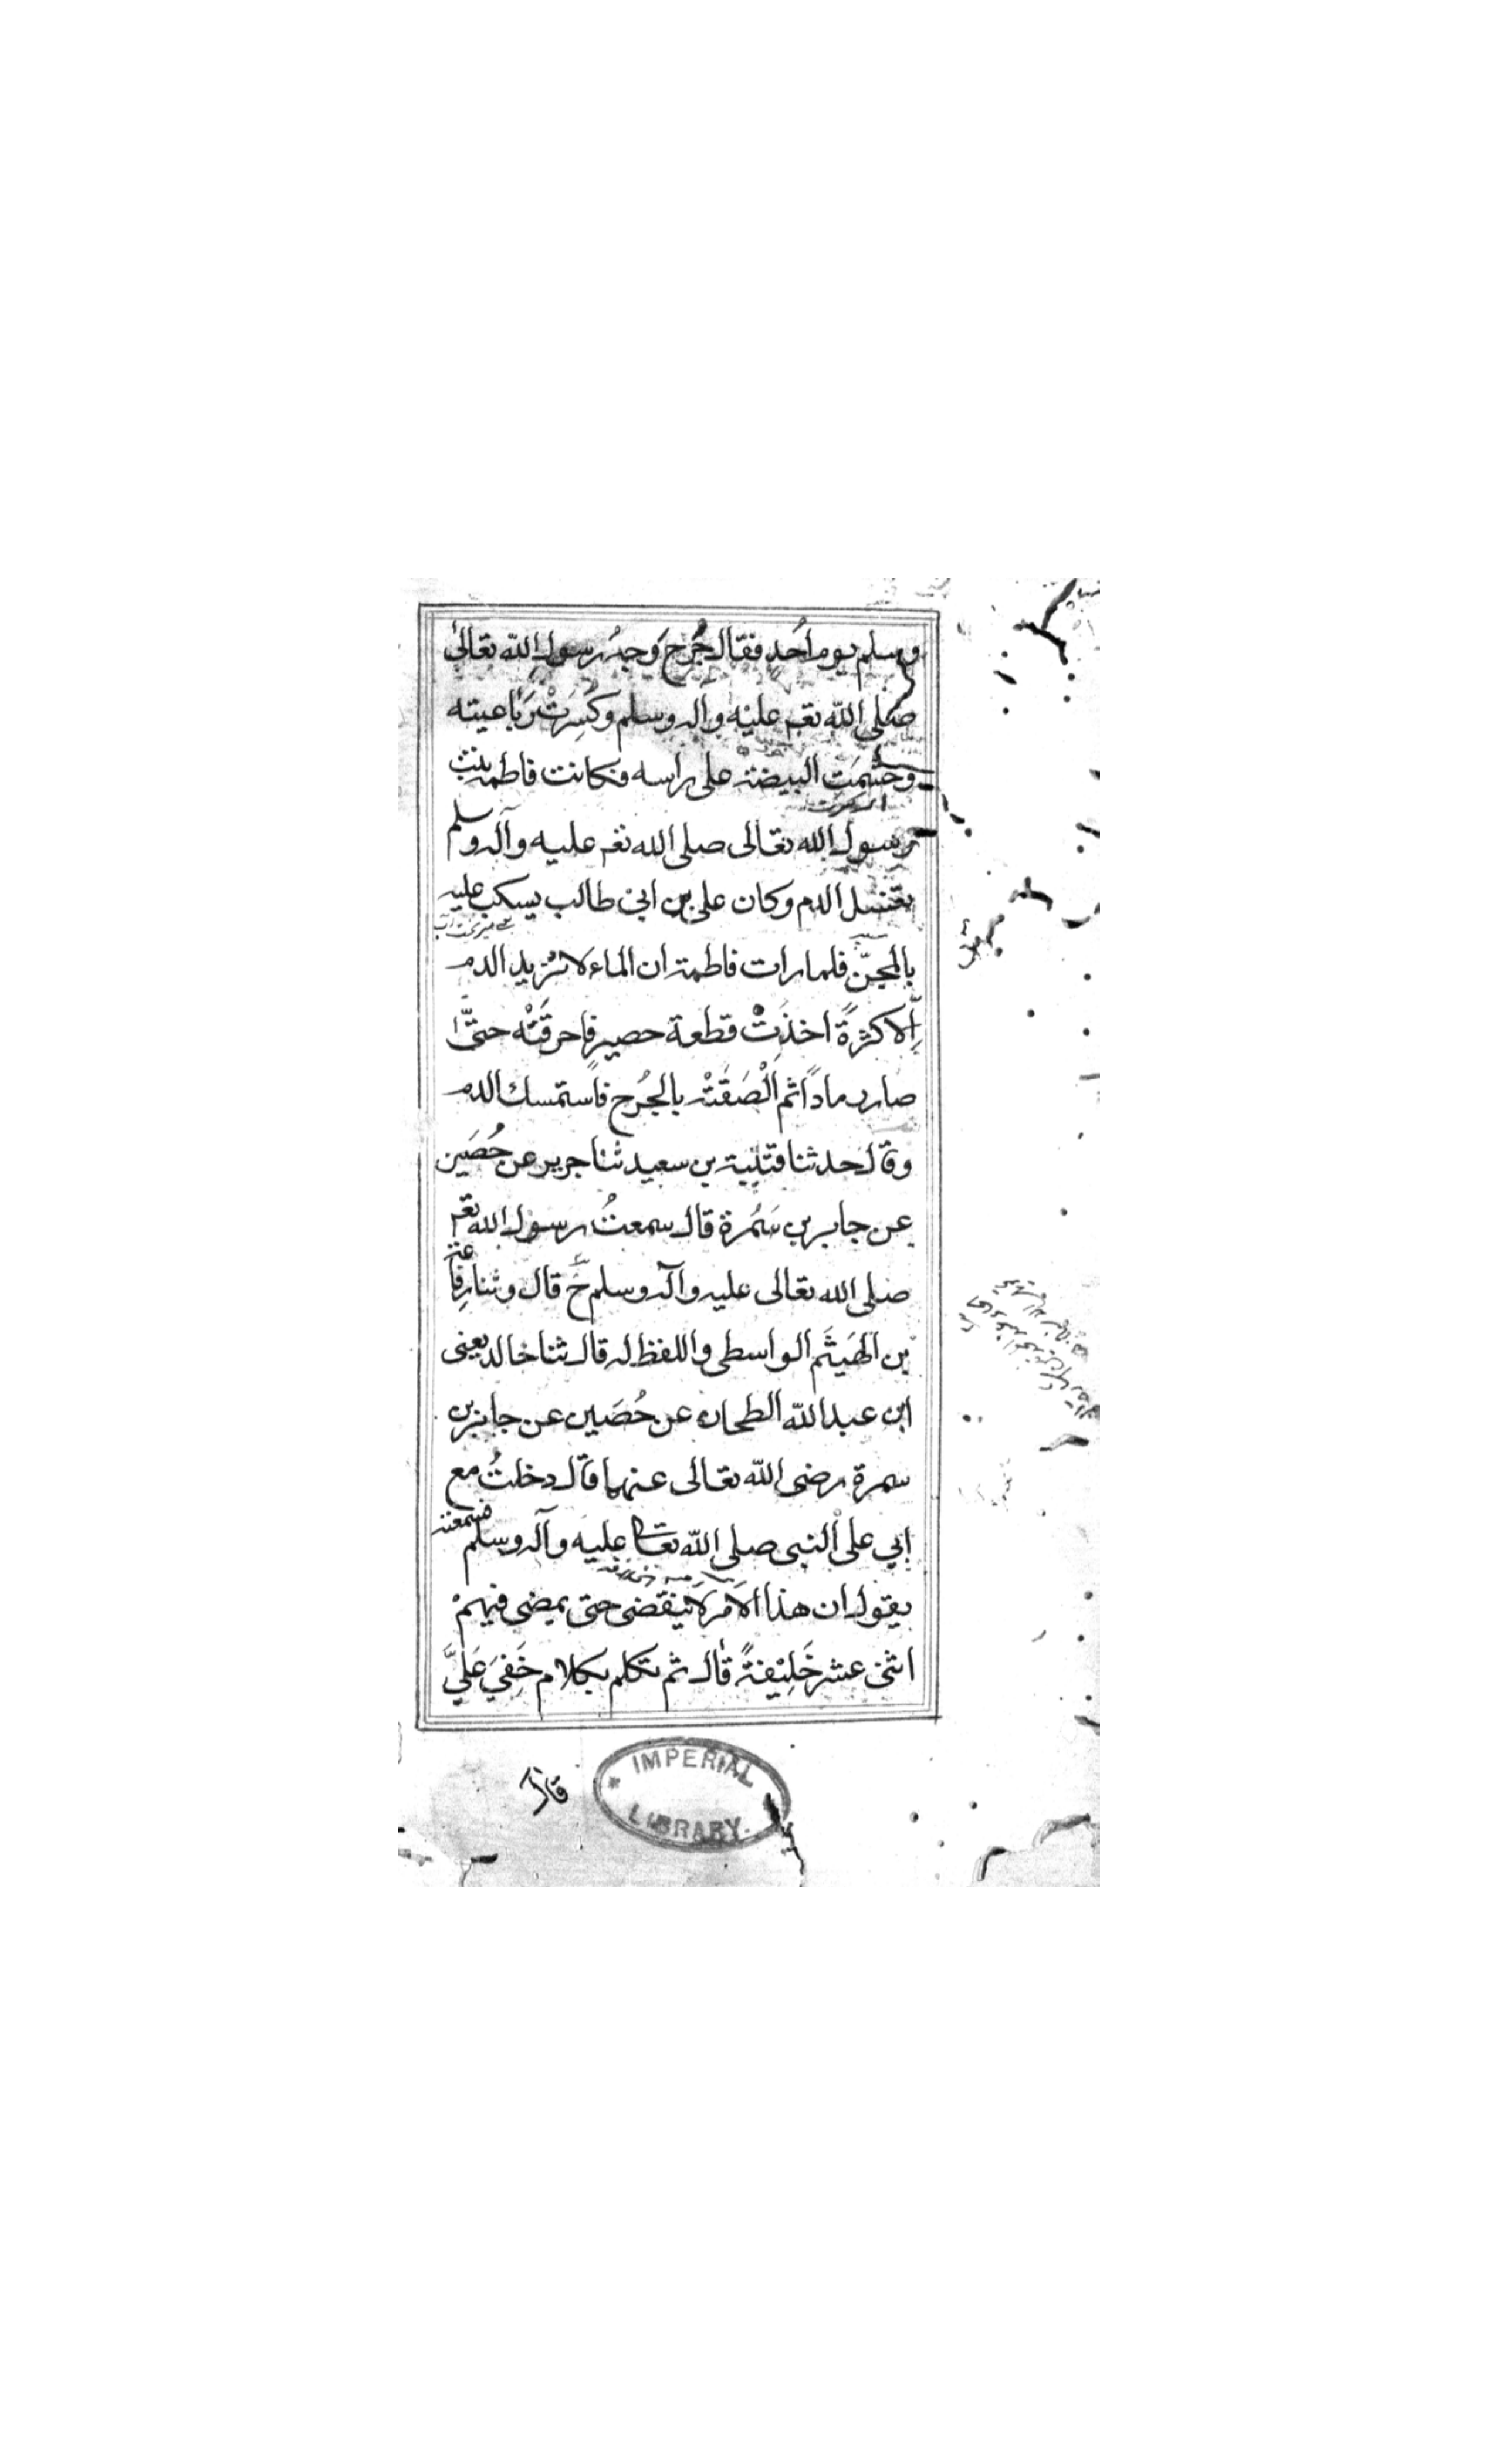 وسلم يوم اُحدٍ فقال جُرِحَ وجهُ رسول الله تعالىٰ
صلى الله تعـ عليه وآله وسلم وكُسِرَتْ رَبَاعيته
وهُشِمَتِ البيضة على راسه فكانت فاطمة بنت
رسول الله تعالى صلى الله تعـ عليه وآله وسلم
تغسل الدم وكان على بن ابى طالب يسكب عليه
بالمجنّ فلما رات فاطمة ان الماء لا يزيد الدم
اِلّا كثرةً اخذَتْ قطعة حصيرٍ فاحرقَتْه حتىّٰ
صار رماداً ثم الْصَقَتْه بالجُرح فاستمسك الدم
وقال حدثنا قتيبة بن سعيد ثنا جرير عن حُصَين
عن جابر بن سَمُرة قال سمعتُ رسول الله تعـ
صلى الله تعالى عليه وآله وسلم ح قال وثنا رفاعة
بن الهَيثَم الواسطى واللفظ له قال ثنا خالد يعنى
ابن عبد الله الطحان عن حُصَين عن جابر بن
سمرة رضى الله تعالى عنهما قال دخلتُ مع
ابي على النبى صلى الله تعا عليه وآله وسلم فسمعته
يقول ان هذا الاَمْرَ لا ينقضى حتى يمضى فيهمْ
اثنى عشر خَلِيْفةً قال ثم تكلم بكلام خَفِيَ عَلَيَّ
IMPERIAL
LIBRARY.
قال